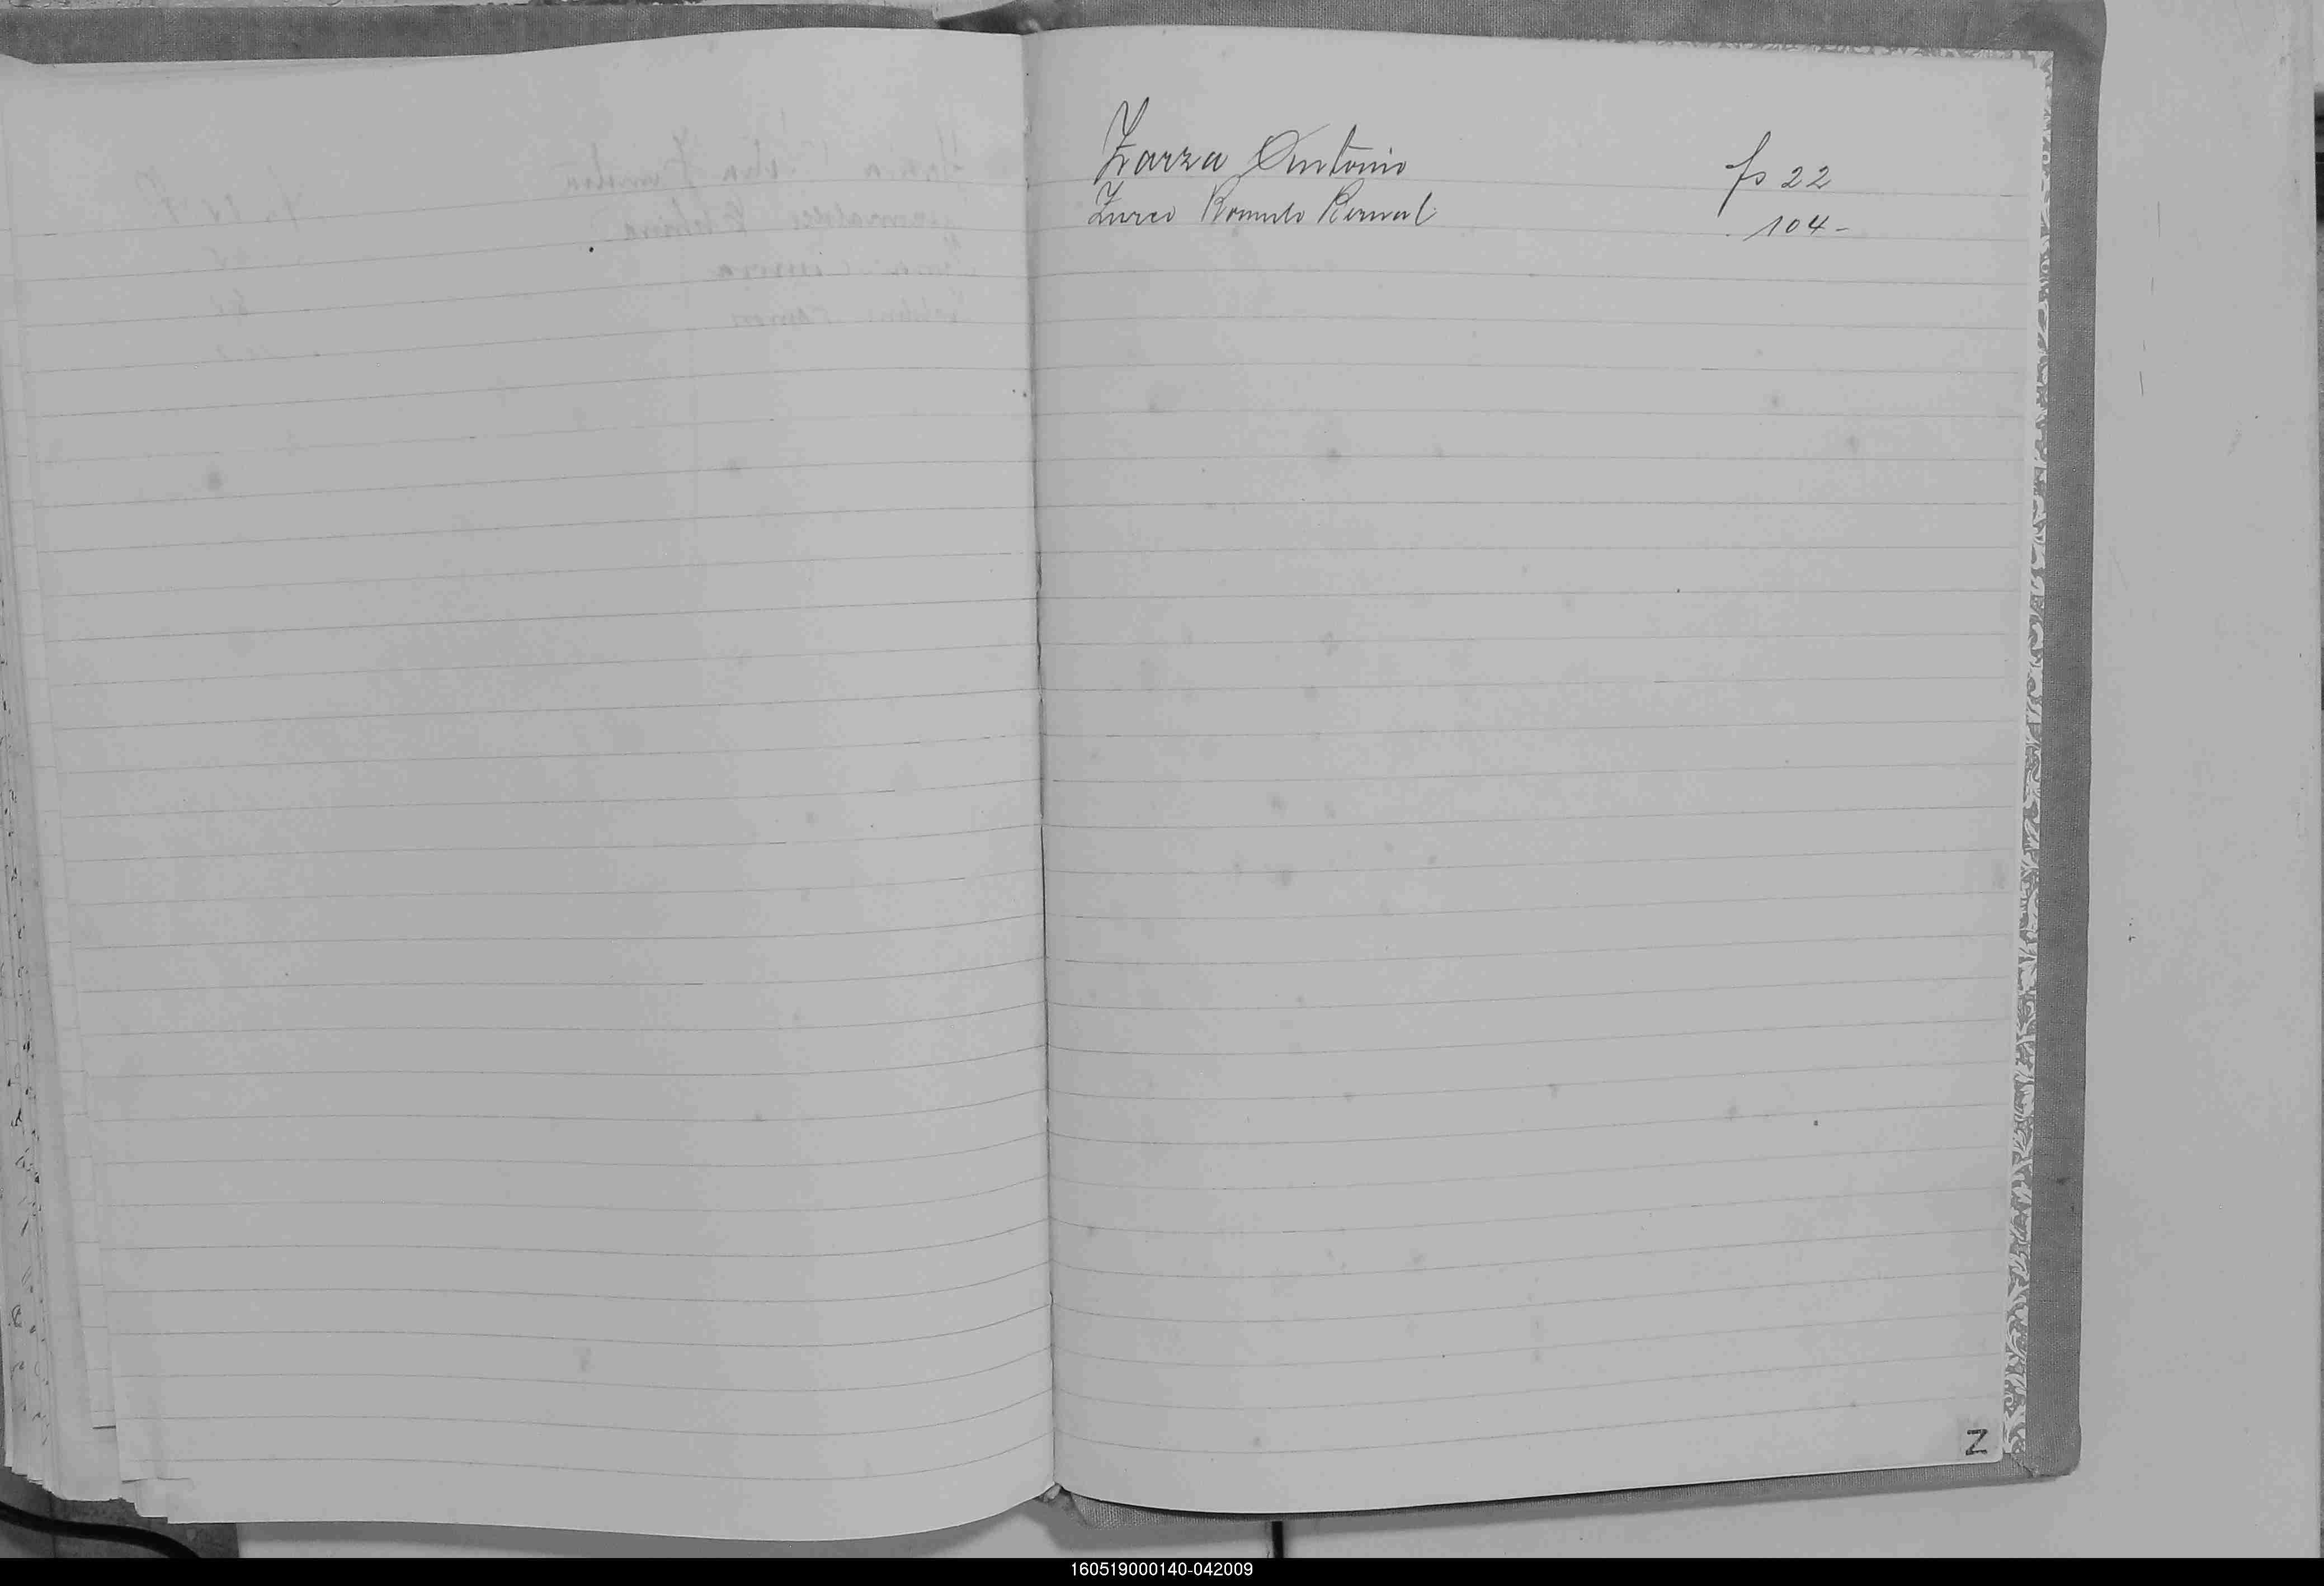 Zarza Antonio fs 22
Zurco Romulo Bernal 104-
Z
160519000140-042009